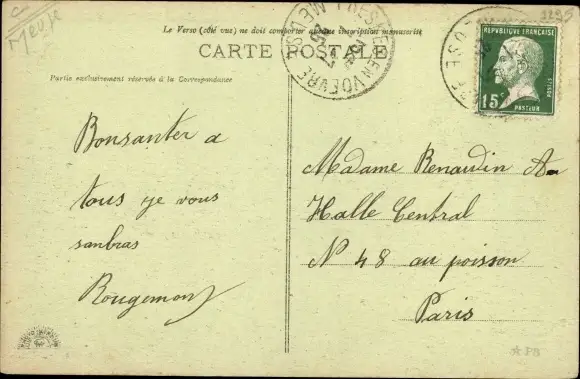 Meuse
Le Verso (côté vue) ne doit comporter aucune inscription manuscrite
CARTE POSTALE
Partie exclusivement réservée à la Correspondance
FRESNES EN WOEVRE
MEUSE
REPUBLIQUE FRANÇAISE
15c
PASTEUR
POSTES
Bonsanter a
tous je vous
sanbras
Rougemont
Madame Renaudin A
Halle Central
N 48 au poisson
Paris